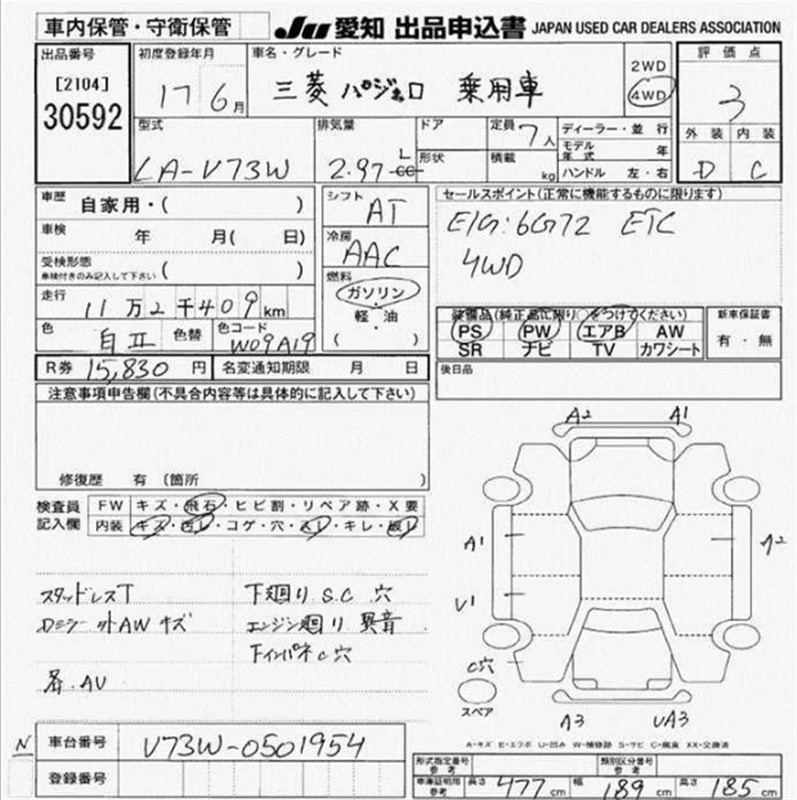 車内保管・守衛保管 JU 愛知 出品申込書 JAPAN USED CAR DEALERS ASSOCIATION
出品番号 初度登録年月 車名・グレード 評価点
[2104]
30592
17 6月
三菱 パジェロ 乗用車
2WD
4WD
3
型式 排気量 ドア 定員 7人 ディーラー・並行 外装 内装
LA-V73W 2.97 L cc 形状 積載 kg モデル年式 年
ハンドル 左・右 D C
車歴 自家用・( )
シフト AT
セールスポイント(正常に機能するものに限ります)
E/G:6G72 ETC
4WD
車検 年 月( 日)
冷房 AAC
受検形態
車検付きのみ記入して下さい ( )
燃料 ガソリン・軽・油
( )
走行 11万2千409km
装備品(純正品に限り○をつけてください) 新車保証書
PS PW エアB AW 有・無
SR ナビ TV カワシート
色 白II 色替 色コード W09A19
R券 15,830円 名変通知期限 月 日
後日品
注意事項申告欄(不具合内容等は具体的に記入して下さい)
修復歴 有 (箇所 )
検査員記入欄
FW キズ・飛石・ヒビ割・リペア跡・X要
内装 キズ・汚レ・コゲ・穴・・キレ・
スタッドレスT 下廻り S.C 穴
Dミラー 外AW キズ エンジン廻り 異音
下インパネC穴
名.AV
A2 A1
A1 A2
V1
C穴
スペア
A3 UA3
A-キズ E-エクボ U-凹み W-補修跡 S-サビ C-腐食 XX-交換済
N 車台番号 V73W-0501954
登録番号
形式指定番号 参考 類別区分番号 参考
車庫証明用 参考 長さ 477cm 幅 189cm 高さ 185cm